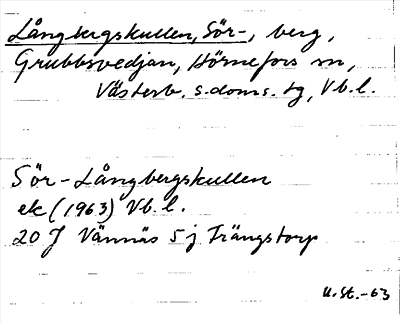 Långbergskullen, Sör-, berg,
Grubbsvedjan, Hörnefors sn,
Västerb. s. doms. tg, Vb. l.
Sör-Långbergskullen
ek (1963) Vb. l.
20 J Vännäs 5 j Trängstorp
U. St. -63